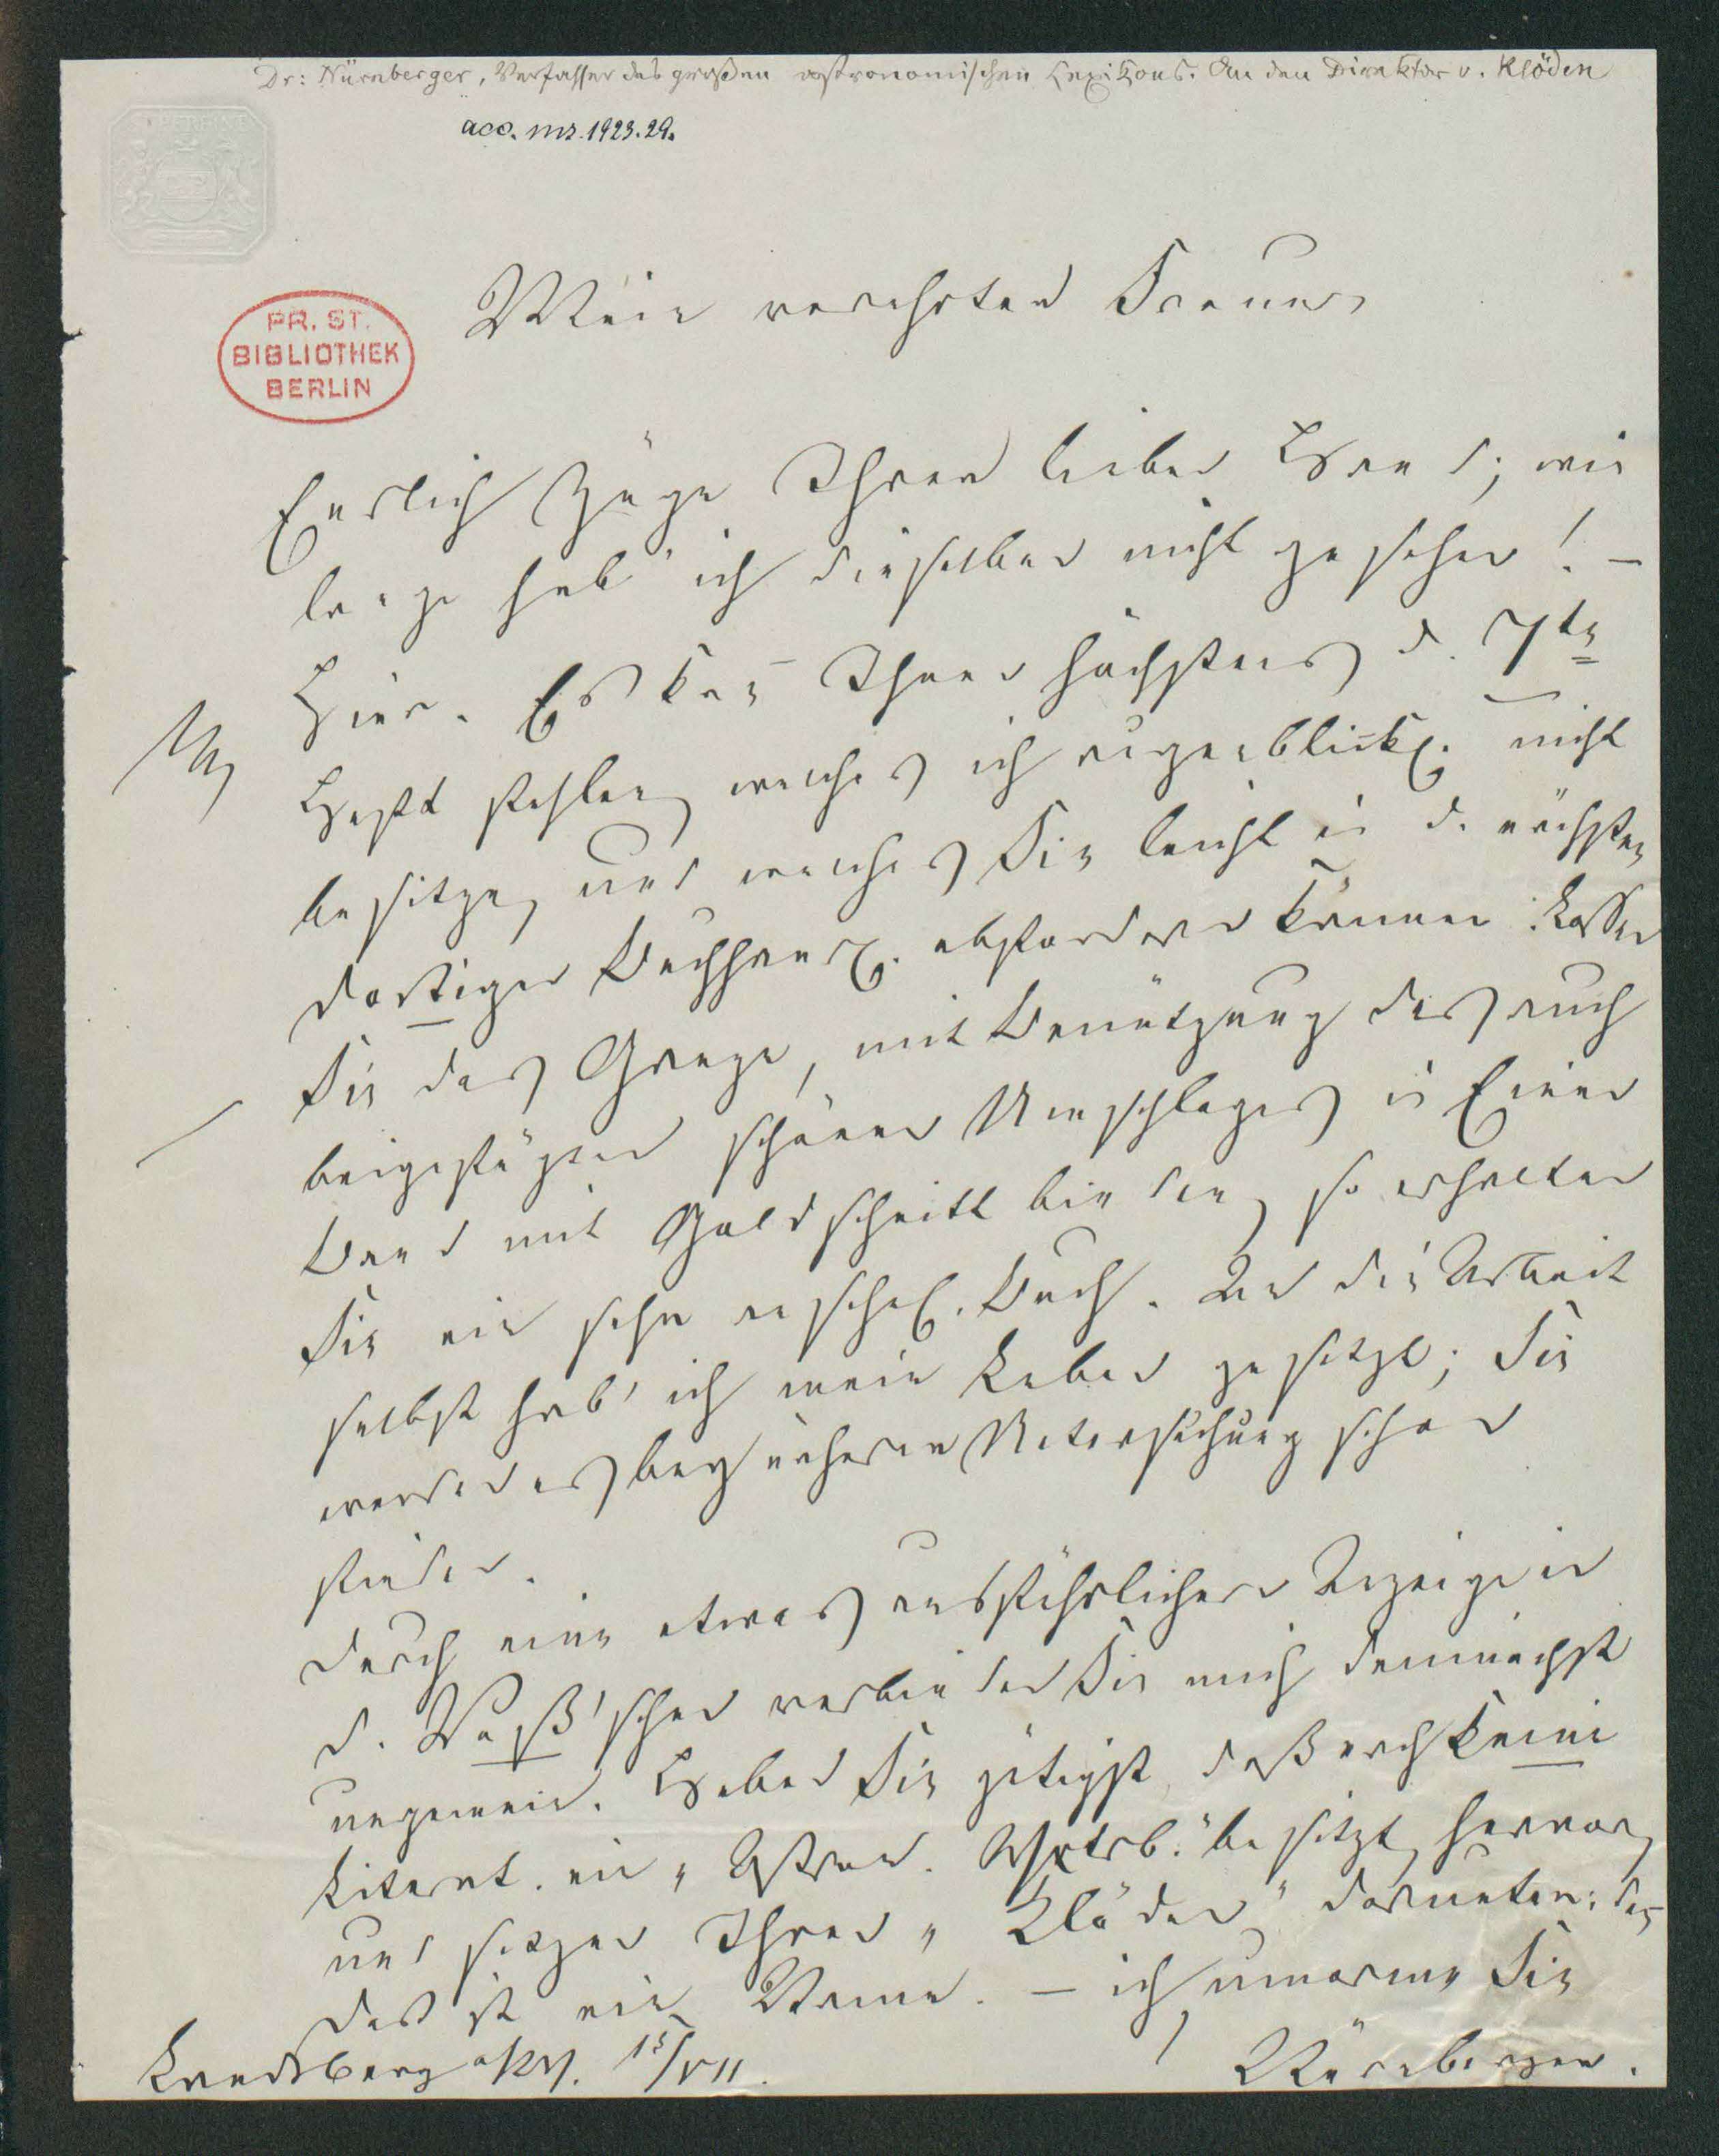 Dr: Nürnberger, Verfasser des großen astronomischen Lexikons. An den Direktor v. Klöden
acc. ms. 1923.29.
PR. ST.
BIBLIOTHEK
BERLIN
Mein verehrter Freund,
Endlich Züge Ihrer lieben Hand; wie
lange hab' ich dieselben nicht gesehen! –
Hier. Es kan̄ Ihnen höchstens d. 7te
Heft fehlen, welches ich augenblickl. nicht
besitze, und welches Sie leicht in d. nächsten
dortigen Buchhandl. abfordern können. Lassen
Sie das Ganze, mit Benützung des auch
beigefügten schönen Umschlages in Einen
Band mit Goldschnitt binden, so erhalten
Sie ein sehr Buch. An die Arbeit
selbst hab' ich mein Leben gesetzt; Sie
werden es bey näherer Untersuchung schon
finden.
Durch eine etwas ausführlichere Anzeige in
d. Voß'schen verbinden Sie mich demnächst
ungemein. Heben Sie gütigst, daß noch keine
Literat. ein „Astron. Wörterb." besitzt, hervor,
und setzen Ihren „Klöden" darunter: denn
das ist ein Name. – ich umarme Sie
Landsberg a/W. 15/VII.
Nürnberger.